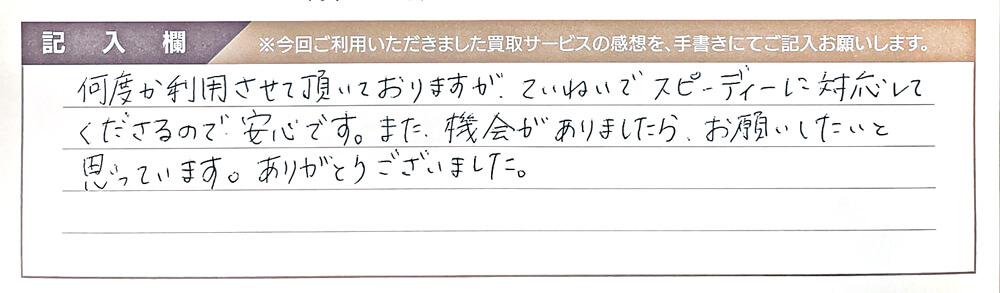 記入欄 ※今回ご利用いただきました買取サービスの感想を、手書きにてご記入お願いします。
何度か利用させて頂いておりますが、ていねいでスピーディーに対応して
くださるので、安心です。また、機会がありましたら、お願いしたいと
思っています。ありがとうございました。